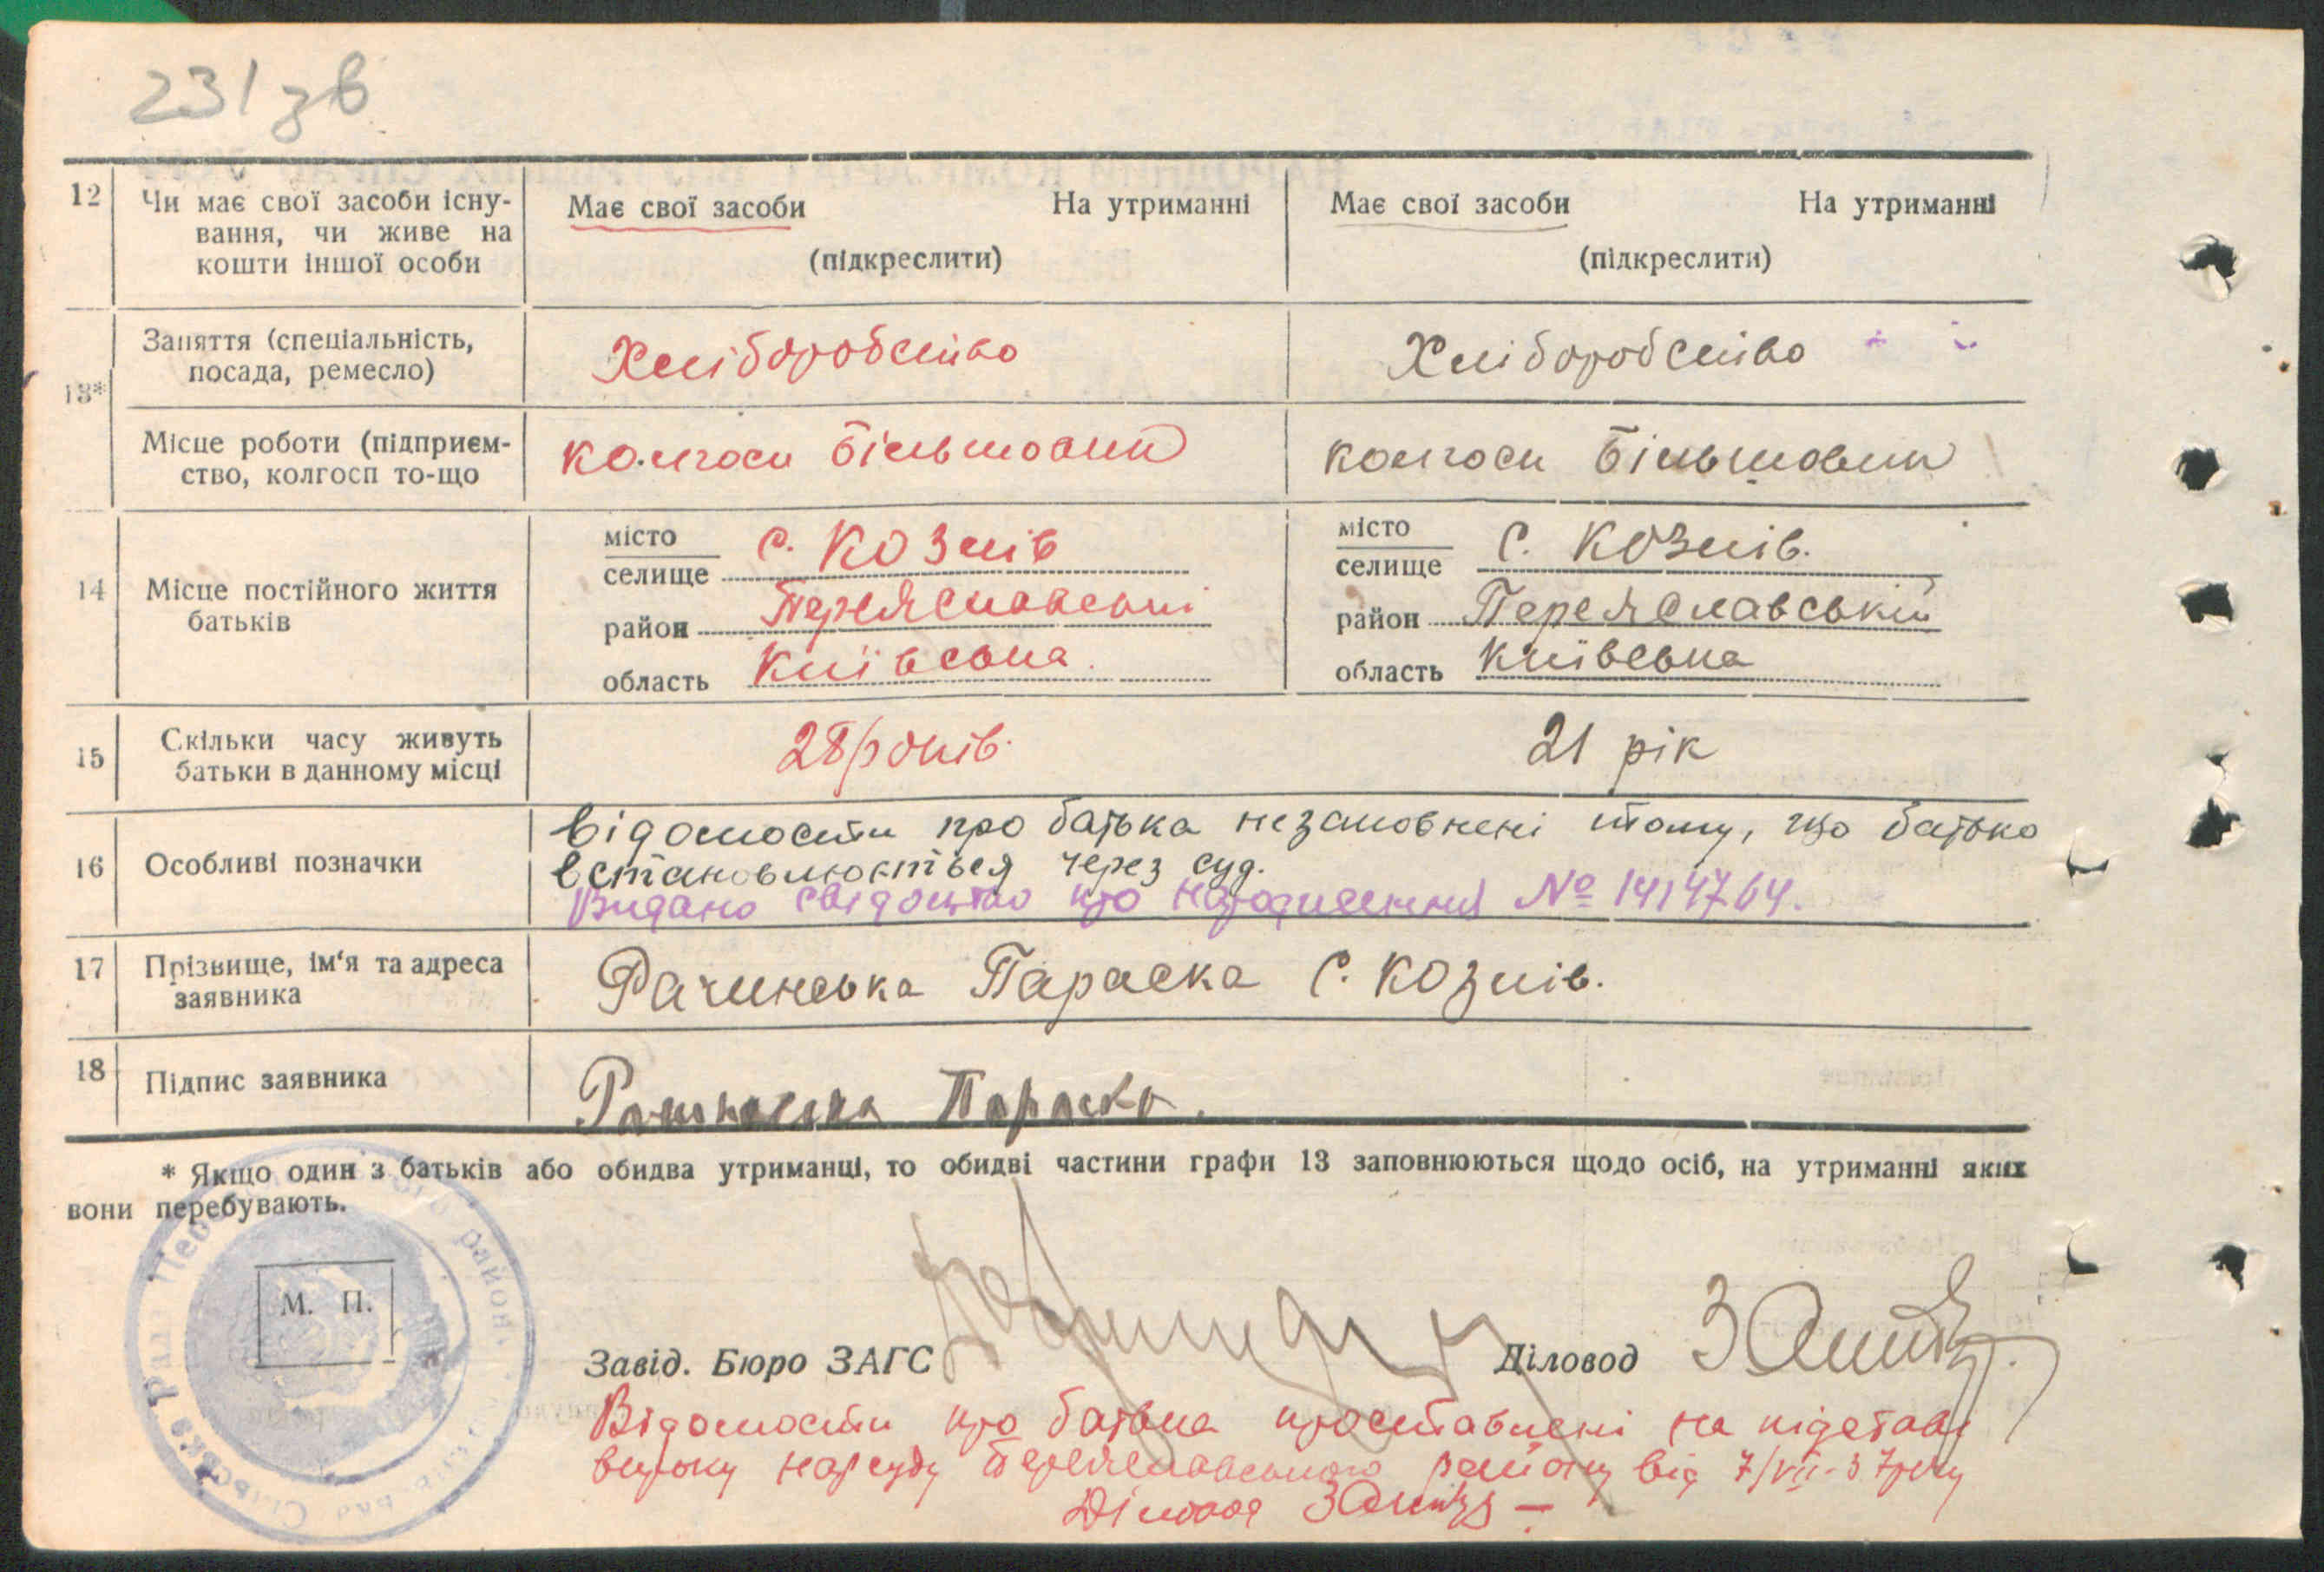 231 зв
12 Чи має свої засоби існу- Має свої засоби На утриманні Має свої засоби На утриманні
вання, чи живе на
кошти іншої особи (підкреслити) (підкреслити)
13* Заняття (спеціальність, Хліборобство Хліборобство
посада, ремесло)
Місце роботи (підприєм- колгосп Більшовик колгосп Більшовик
ство, колгосп то-що
14 Місце постійного життя батьків
місто селище с. Козлів місто селище с. Козлів.
район Переяславські район Переяславській
область Київська. область Київська
15 Скільки часу живуть 28 років. 21 рік
батьки в данному місці
16 Особливі позначки відомости про батька незаповнені тому, що батько
встановлюються через суд.
Видано свідоцтво про народження № 1414764.
17 Прізвище, ім'я та адреса Рачинська Параска с. Козлів.
заявника
18 Підпис заявника Рачинська Параска.
* Якщо один з батьків або обидва утриманці, то обидві частини графи 13 заповнюються щодо осіб, на утриманні яких
вони перебувають.
М. П.
Завід. Бюро ЗАГС Діловод
Відомости про батька проставлені на підставі
вироку нарсуду Переяславського району від 7/VII-37 року
Діловод